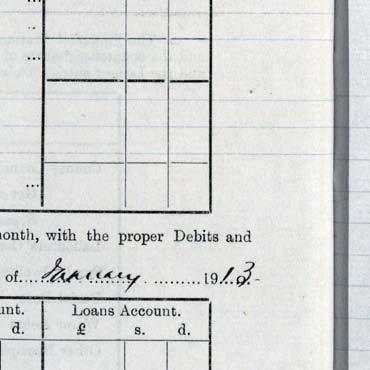 ...
...
nonth, with the proper Debits and
of January 1913-
unt. Loans Account.
d. £ s. d.